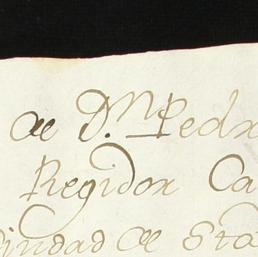 de D.ⁿ Pedr
Regidor Ca
iudad de Sta